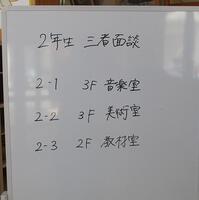 2年生 三者面談
2-1 3F 音楽室
2-2 3F 美術室
2-3 2F 教材室